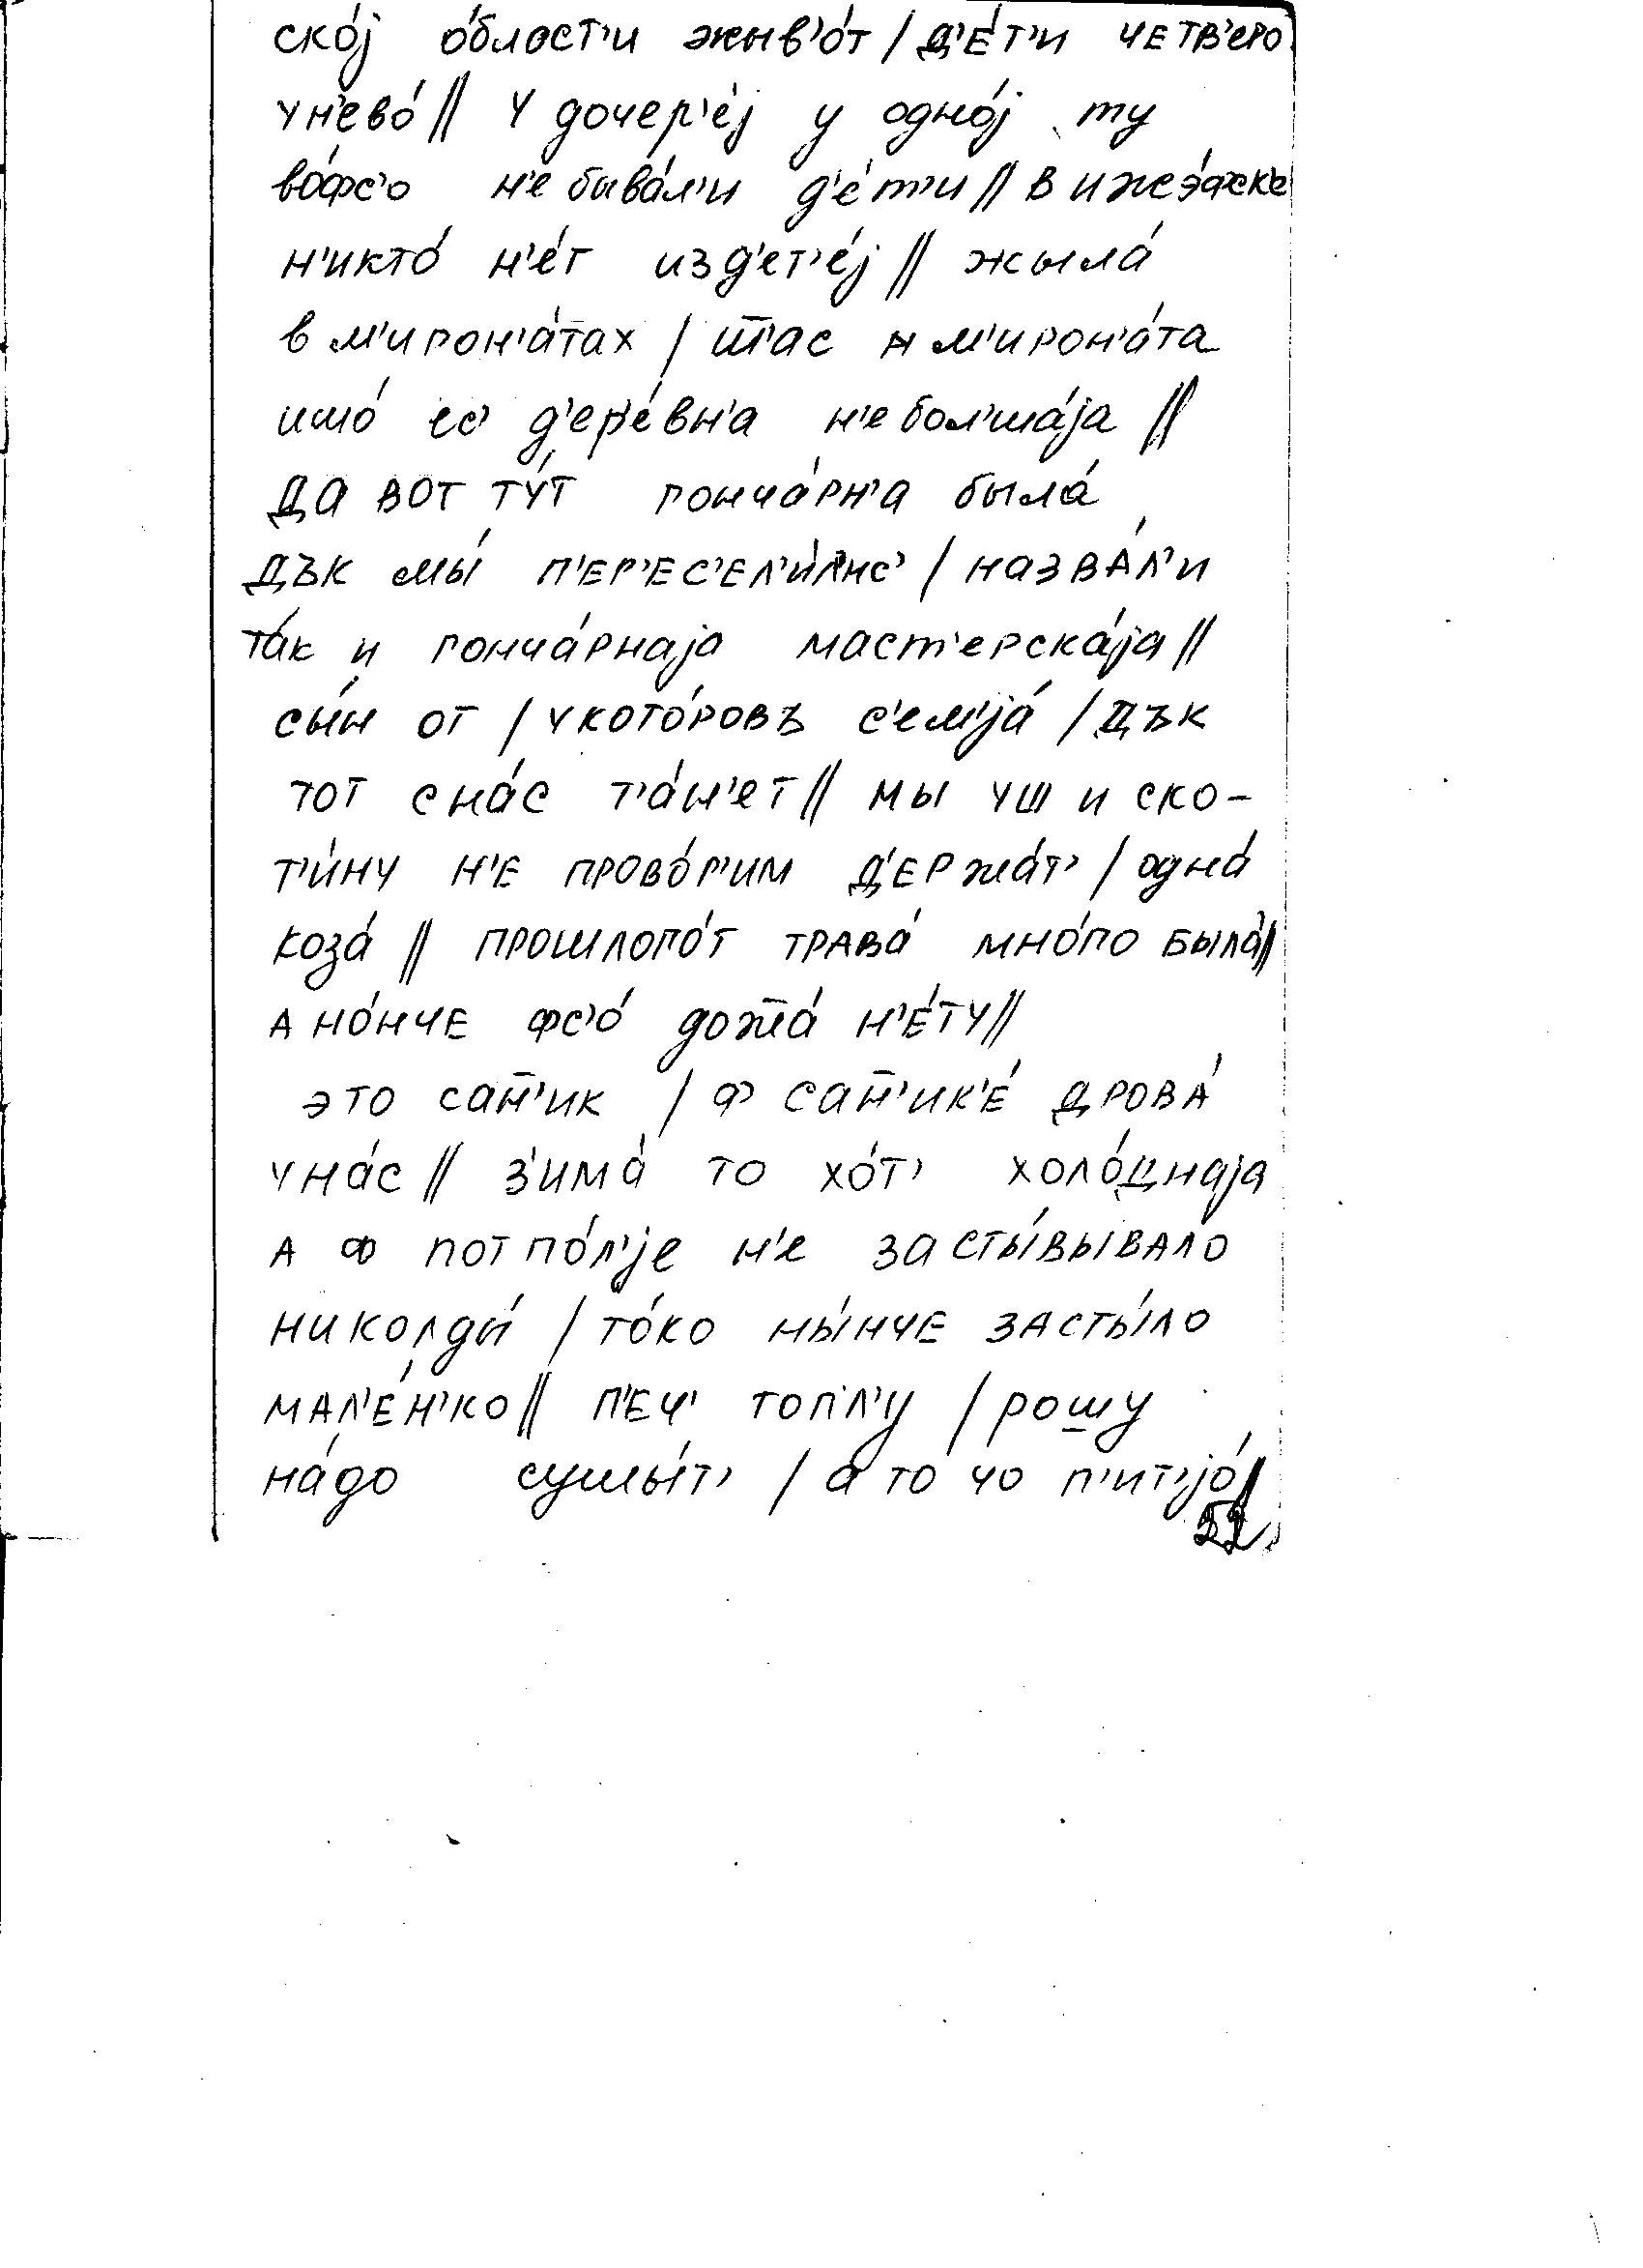 ско́ј о́бласт'и жыв'о́т / д'е́т'и четв'еро
ун'ево́ // у дочер'е́ј у одно́ј ту
во́фс'о н'е быва́л'и д'е́т'и // в ижэ́фск'е
н'икто́ н'е́т из д'ет'е́ј // жыла́
в м'ирон'а́тах / ш̅'ас и м'ирон'а́та
ишо́ ес' д'ер'е́вн'а н'е бол'ша́ја //
да вот ту́т гонча́рн'а была́
дък мы́ п'ер'ес'ел'и́лис' / назва́л'и
та́к и гонча́рнаја маст'ерска́ја //
сы́н от / у кото́ровъ с'ем'ја́ / дък
тот с на́с т'а́н'ет // мы уш и ско-
т'и́ну н'е прово́р'им д'ержа́т' / одна́
коза́ // прошлого́т трава́ мно́го была́ //
а но́нче фс'о́ дож̅а́ н'е́ту //
это сан̅'ик / ф сан̅'ик'е́ дрова́
у на́с // з'има́ то хо́т' холо́днаја
а ф потпо́л'је н'е засты́вывало
николды́ / то́ко ны́нче засты́ло
мал'е́н'ко // п'еч' топл'у / рошу
на́до сушы́т' / а то чо п'ит'јо́ //